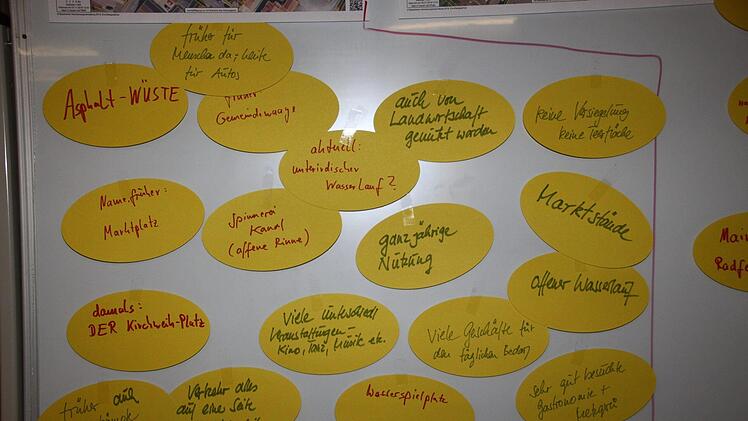 früher für
Menschen da; heute
für Autos
Asphalt-WÜSTE
früher
Gemeindewaage
auch von
Landwirtschaft
genützt worden
keine Versiegelung
keine Teerfläche
aktuell:
unterirdischer
Wasserlauf?
Name früher:
Marktplatz
Spinnerei
Kanal
(offene Rinne)
ganzjährige
Nützung
Marktstände
offener Wasserlauf
damals:
DER Kirchweih-Platz
Viele unterschiedl
Veranstaltungen -
Kino, Tanz, Musik etc.
Viele Geschäfte für
den täglichen Bedarf
Sehr gut besuchte
Gastronomie +
früher auch
Verkehr alles
auf eine Seite
Wasserspielplatz